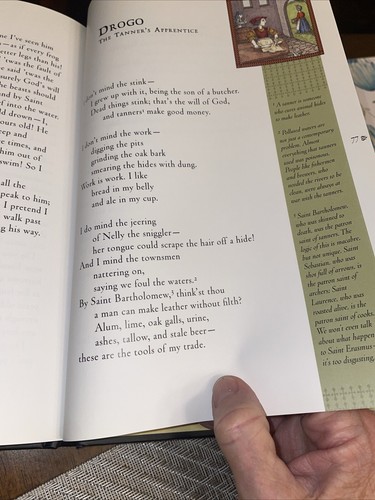 e I've seen him
— as if every frog
etter legs than his!
was the fault of
she said 'twas the
surely God's will
he beasts should
nd by Saint
into the water.
ld drown—I,
ours old! He
eep and
e times, and
him out of
swim! So I
all the
peak to him;
I pretend I
walk past
ng his way.
DROGO
THE TANNER'S APPRENTICE
don't mind the stink—
I grew up with it, being the son of a butcher.
Dead things stink; that's the will of God,
and tanners¹ make good money.
I don't mind the work—
digging the pits
grinding the oak bark
smearing the hides with dung.
Work is work. I like
bread in my belly
and ale in my cup.
I do mind the jeering
of Nelly the sniggler—
her tongue could scrape the hair off a hide!
And I mind the townsmen
nattering on,
saying we foul the waters.²
By Saint Bartholomew,³ think'st thou
a man can make leather without filth?
Alum, lime, oak galls, urine,
ashes, tallow, and stale beer—
these are the tools of my trade.
¹ A tanner is someone
who cures animal hides
to make leather.
² Polluted waters are
not just a contemporary
problem. Almost
everything that tanners
used was poisonous.
People like fishermen
and brewers, who
needed the rivers to be
clean, were always at
war with the tanners.
³ Saint Bartholomew,
who was skinned to
death, was the patron
saint of tanners. The
logic of this is macabre,
but not unique: Saint
Sebastian, who was
shot full of arrows, is
the patron saint of
archers; Saint
Laurence, who was
roasted alive, is the
patron saint of cooks.
We won't even talk
about what happen
to Saint Erasmus—
it's too disgusting.
77